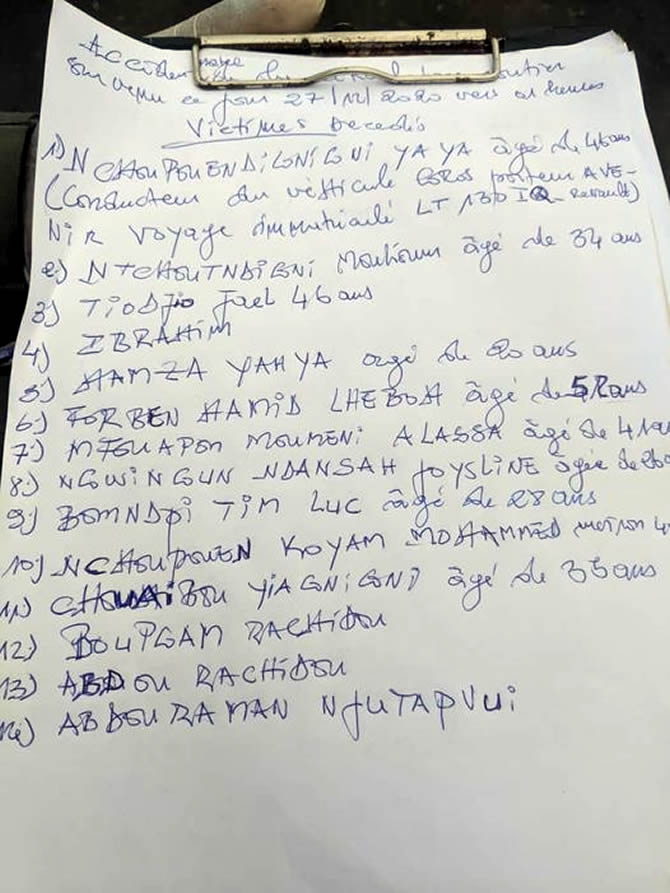 Accident
Sur venu ce jour 27/12/2020 vers 02 heures
Victimes Decedés
1) NCHOUPOUENDILIGNIGNI YAYA âgé de 46 ans
(Conducteur du véhicule Gros porteur AVE-
NIR Voyage immatriculé LT 130 IQ Renault)
2) NTCHOUTNDIGNI âgé de 34 ans
3) TIODJIO Joel 46 ans
4) IBRAHIM
5) HAMZA YAHYA agé de 20 ans
6) FORBEN HAMID LHEBOH âgé de 52 ans
7) MFOUAPON MOUMENI ALASSA âgé de 41 ans
8) NGWINGUN NDANSAH JOYSLINE âgée de
9) BOMNDPI TIM LUC âgé de 28 ans
10) NCHOUPOUEN KOYAM MOHAMMED
11) CHOUAIBOU YIAGNIGNI âgé de 35 ans
12) BOUPGAM RACHIDOU
13) ABDOU RACHIDOU
14) ABDOURAMAN NJUTAPVUI